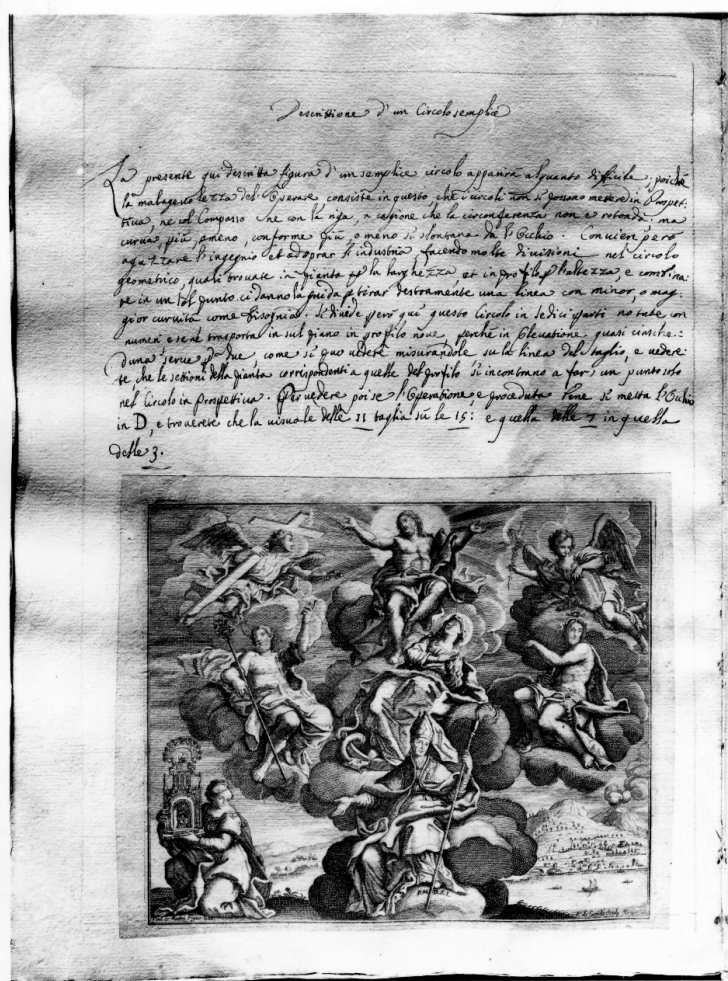 Descrittione d'un Circolo semplice
La presente qui descritta figura d'un semplice circolo apparirà alquanto difficile; poichè
la malagevolezza del Operare consiste in questo, che i circoli non si possono mettere in Prospet-
tiva, ne col Compasso ne con la riga, a cagione che la circonferenza non è rotonda: ma
curva più, o meno, conforme più, o meno si slontana da l'Occhio. Convien però
aguzzare l'ingegnio et adoprar l'industria, facendo molte divisioni nel circolo
geometrico, quali trovate in pianta p la larghezza, et in profilo p l'altezza, e combina-
te in un tal punto, ci danno la guida p tirar destramente una linea con minor, o mag-
gior curvità come bisognia. Si divide però qui questo circolo in sedici parti notate con
numeri e se ne trasporta in sul piano in profilo nove, perchè in Elevatione quasi ciasche-
duna serve p due, come si può vedere misurandole su la linea del taglio, e vedere-
te che le settioni della pianta corrispondenti a quelle del profilo s'incontrano a far un punto solo
nel Circolo in Prospettiva. Per vedere poi se l'Operatione, è proceduta bene si metta l'Occhio
in D, e troverete che la visuale delle 11 taglia sù le 15: e quella delle 7 in quella
delle 3.